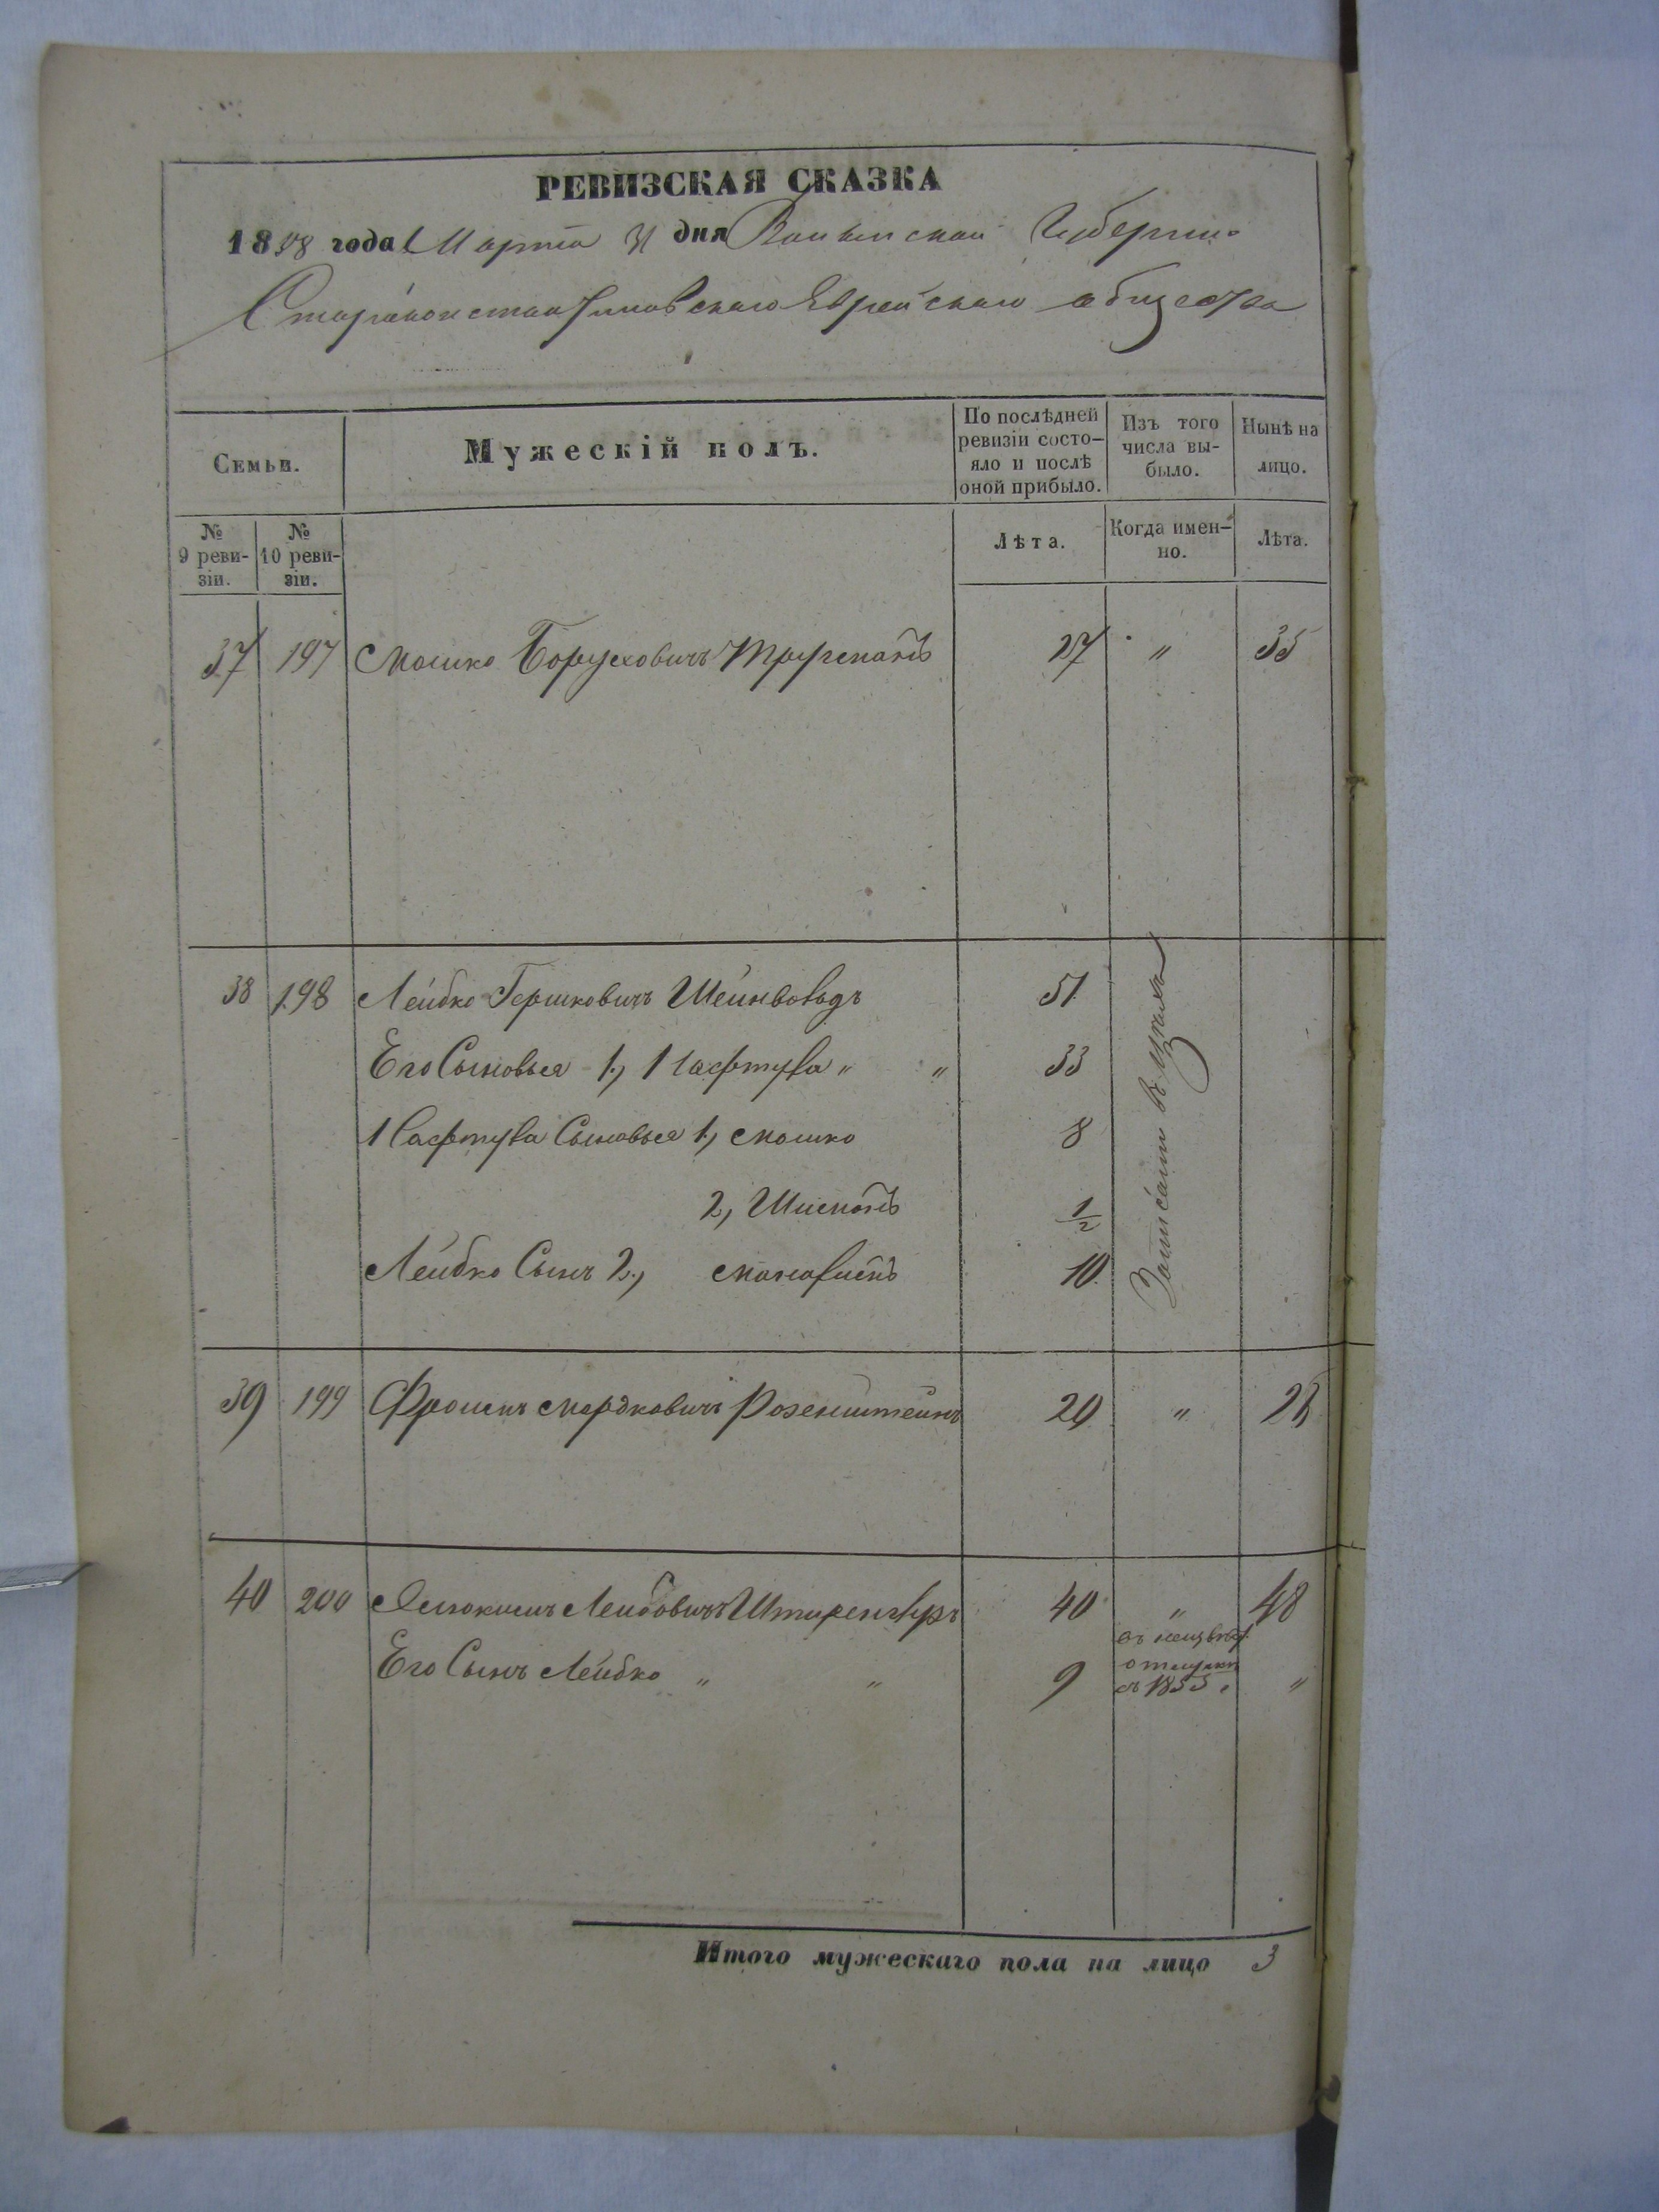 РЕВИЗСКАЯ СКАЗКА
1858 года Марта 31 дня Волынской Губерніи
Староконстантиновскаго Еврейскаго общества
Семьи.
Мужескій полъ.
По послѣдней ревизіи состо-яло и послѣ оной прибыло.
Изъ того числа вы-было.
Нынѣ на лицо.
№ 9 реви-зіи.
№ 10 реви-зіи.
Лѣта.
Когда имен-но.
Лѣта.
37 197 Мошко Боруховичъ 27 " 35
38 198 Лейбко Гершковичъ 51
Его Сыновья 1, Нафтула " " 33
Нафтула Сыновья 1, Мошко 8
2, 1/2
Лейбко Сынъ 2, 10
Записаны в
39 199 Фроимъ Мордковичъ Розенштейнъ 20 " 28
40 200 Лейбовичъ 40 " 48
Его Сынъ Лейбко " " 9 въ неизвѣст. отлучкѣ съ 1855 "
Итого мужескаго пола на лицо 3